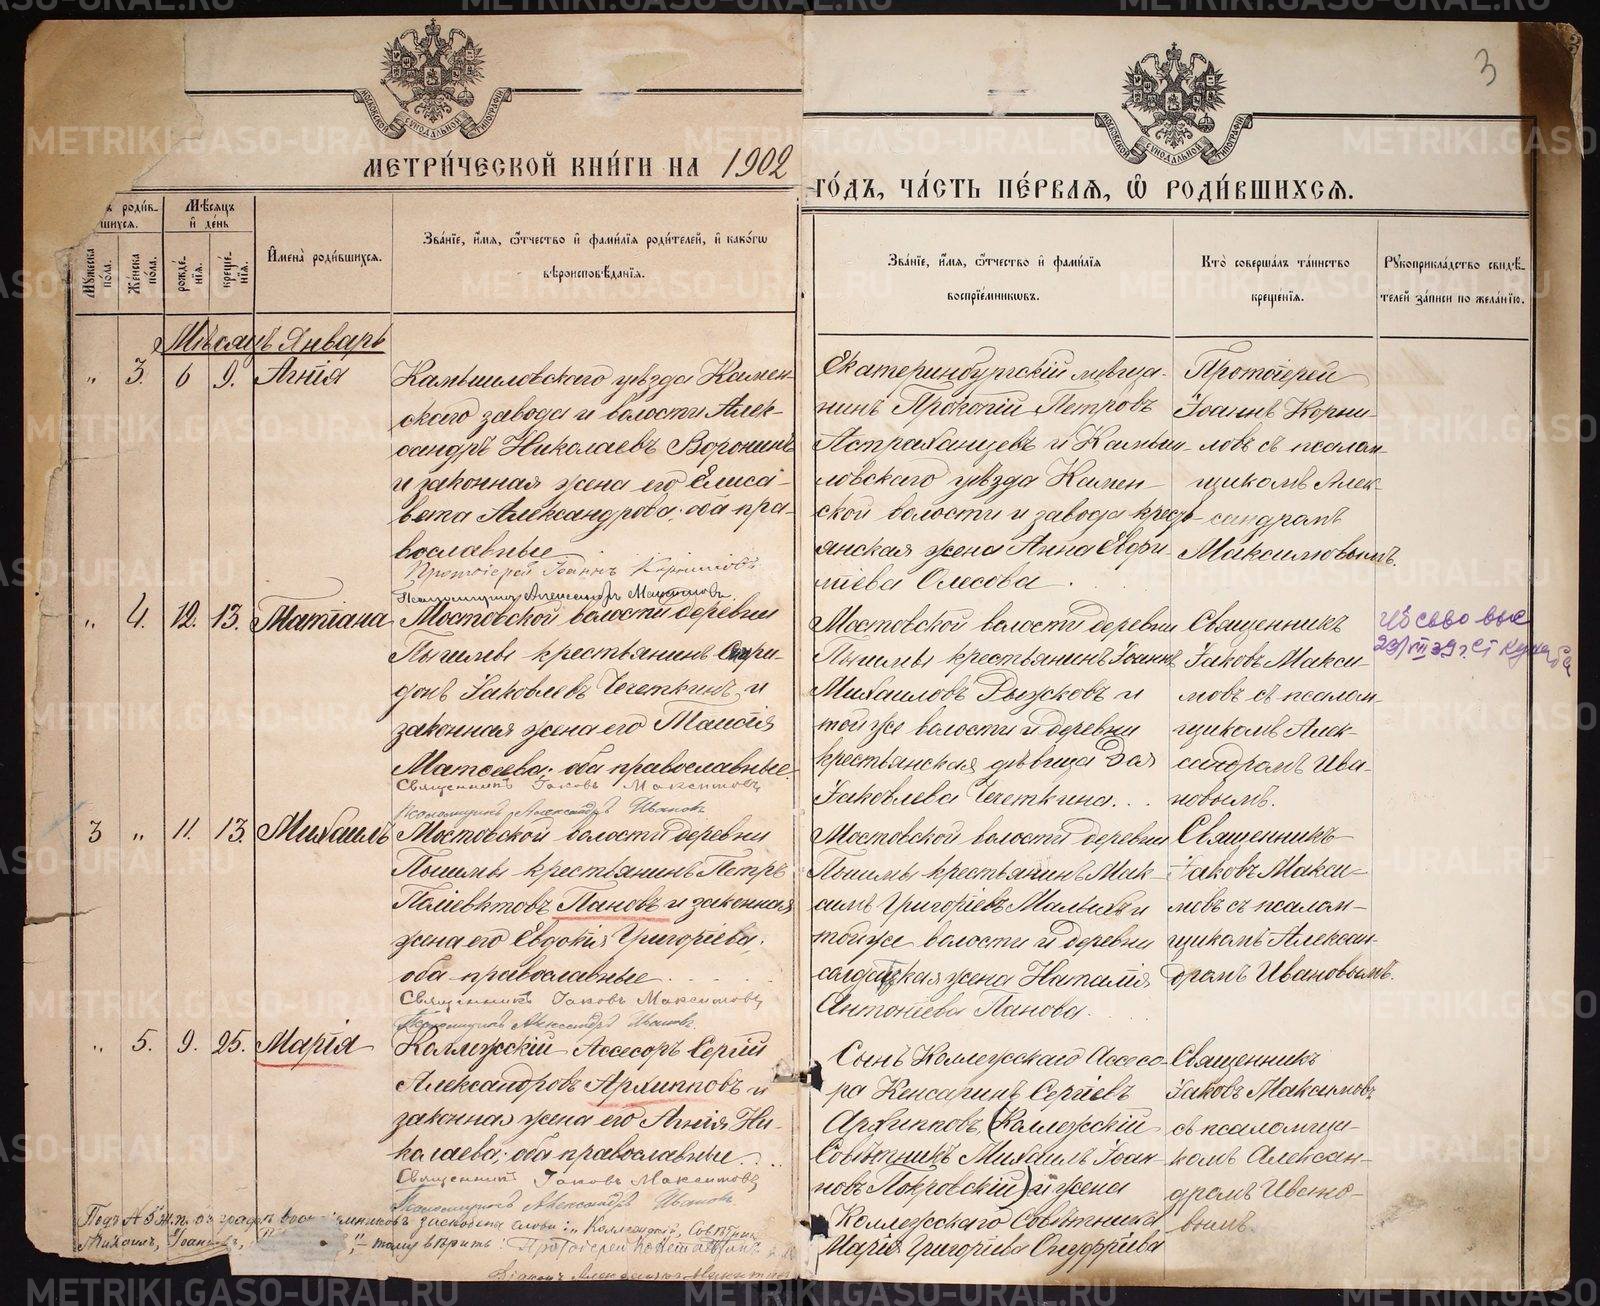 3
МОСКОВСКОЙ СѴНОДАЛЬНОЙ ТИПОГРАФІИ
МОСКОВСКОЙ СѴНОДАЛЬНОЙ ТИПОГРАФІИ
МЕТРИ́ЧЕСКОЙ КНИ́ГИ НА 1902
ГО́ДЪ, ЧА́СТЬ ПЕ́РВАѦ, Ѡ҆ РОДИ́ВШИХСѦ.
ъ роди́в-
шихсѧ.
Мꙋжеска
по́ла.
Же́нска
по́ла.
Мѣ́сѧцъ
и҆ де́нь
рожде́-
нїѧ.
креще́-
нїѧ.
И҆мена̀ роди́вшихсѧ.
Зва́нїе, и҆́мѧ, ѻ҆́тчество и҆ фами́лїѧ роди́телей, и҆ како́гѡ
вѣроисповѣ́данїѧ.
Зва́нїе, и҆́мѧ, ѻ҆́тчество и҆ фами́лїѧ
воспрїе́мникѡвъ.
Кто̀ соверша́лъ та́инство
креще́нїѧ.
Рꙋкоприкла́дство свидѣ́-
телей за́писи по жела́нїю.
Мѣсяцъ Январь
" 3. 6 9. Агнія
Камышловскаго уѣзда Камен-
скаго завода и волости Алек-
сандръ Николаевъ Воронинъ
и законная жена его Елиса-
вета Александрова; оба пра-
вославные
Протоіерей Іоаннъ Корниловъ
Псаломщикъ Александръ Максимовъ.
Екатеринбургскій мѣща-
нинъ Прокопій Петровъ
Астраханцевъ и Камыш-
ловскаго уѣзда Камен-
ской волости и завода кресть-
янская жена Анна Евфи-
міева Олесова.
Протоіерей
Іоаннъ Корни-
ловъ съ псалом-
щикомъ Алек-
сандромъ
Максимовымъ.
" 4. 12. 13. Татіана
Мостовской волости деревни
Пышмы крестьянинъ Спири-
донъ Іаковлевъ Чечеткинъ и
законная жена его Таисія
Матѳеева; оба православные.
Священникъ Іаковъ Максимовъ
Псаломщикъ Александръ Ивановъ
Мостовской волости деревни
Пышмы крестьянинъ Іоаннъ
Михаиловъ Рыжковъ и
той же волости и деревни
крестьянская дѣвица Зоя
Іаковлева Чечеткина.
Священникъ
Іаковъ Макси-
мовъ съ псалом-
щикомъ Алек-
сандромъ Ива-
новымъ.
3 " 11. 13. Михаилъ
Мостовской волости деревни
Пышмы крестьянинъ Петръ
Поліевктовъ Пановъ и законная
жена его Евдокія Григоріева;
оба православные
Священникъ Іаковъ Максимовъ
Псаломщикъ Александръ Ивановъ
Мостовской волости деревни
Пышмы крестьянинъ Мак-
симъ Григоріевъ Малыхъ и
той же волости и деревни
солдатская жена Наталія
Антоніева Панова.
Священникъ
Іаковъ Макси-
мовъ съ псалом-
щикомъ Алексан-
дромъ Ивановымъ.
" 5. 9. 25. Марія
Коллежскій Ассесоръ Сергій
Александровъ Архипповъ и
законная жена его Агнія Ни-
колаева; оба православные.
Священникъ Іаковъ Максимовъ
Псаломщикъ Александръ Ивановъ
Сынъ Коллежскаго Ассесо-
ра Кенсаринъ Сергіевъ
Архипповъ, (Коллежскій
Совѣтникъ Михаилъ Іоан-
новъ Покровскій) и жена
Коллежскаго Совѣтника
Марія Григоріева Онуфріева
Священникъ
Іаковъ Максимовъ
съ псаломщи-
комъ Алексан-
дромъ Ивано-
вымъ.
Подъ № 5 ж. п. въ графѣ воспріемниковъ заскоблены слова: „Коллежскій, Совѣтникъ
Михаилъ, Іоанновъ,
тому вѣрить: Протоіерей
Діаконъ Александръ
METRIKI.GASO-URAL.RU